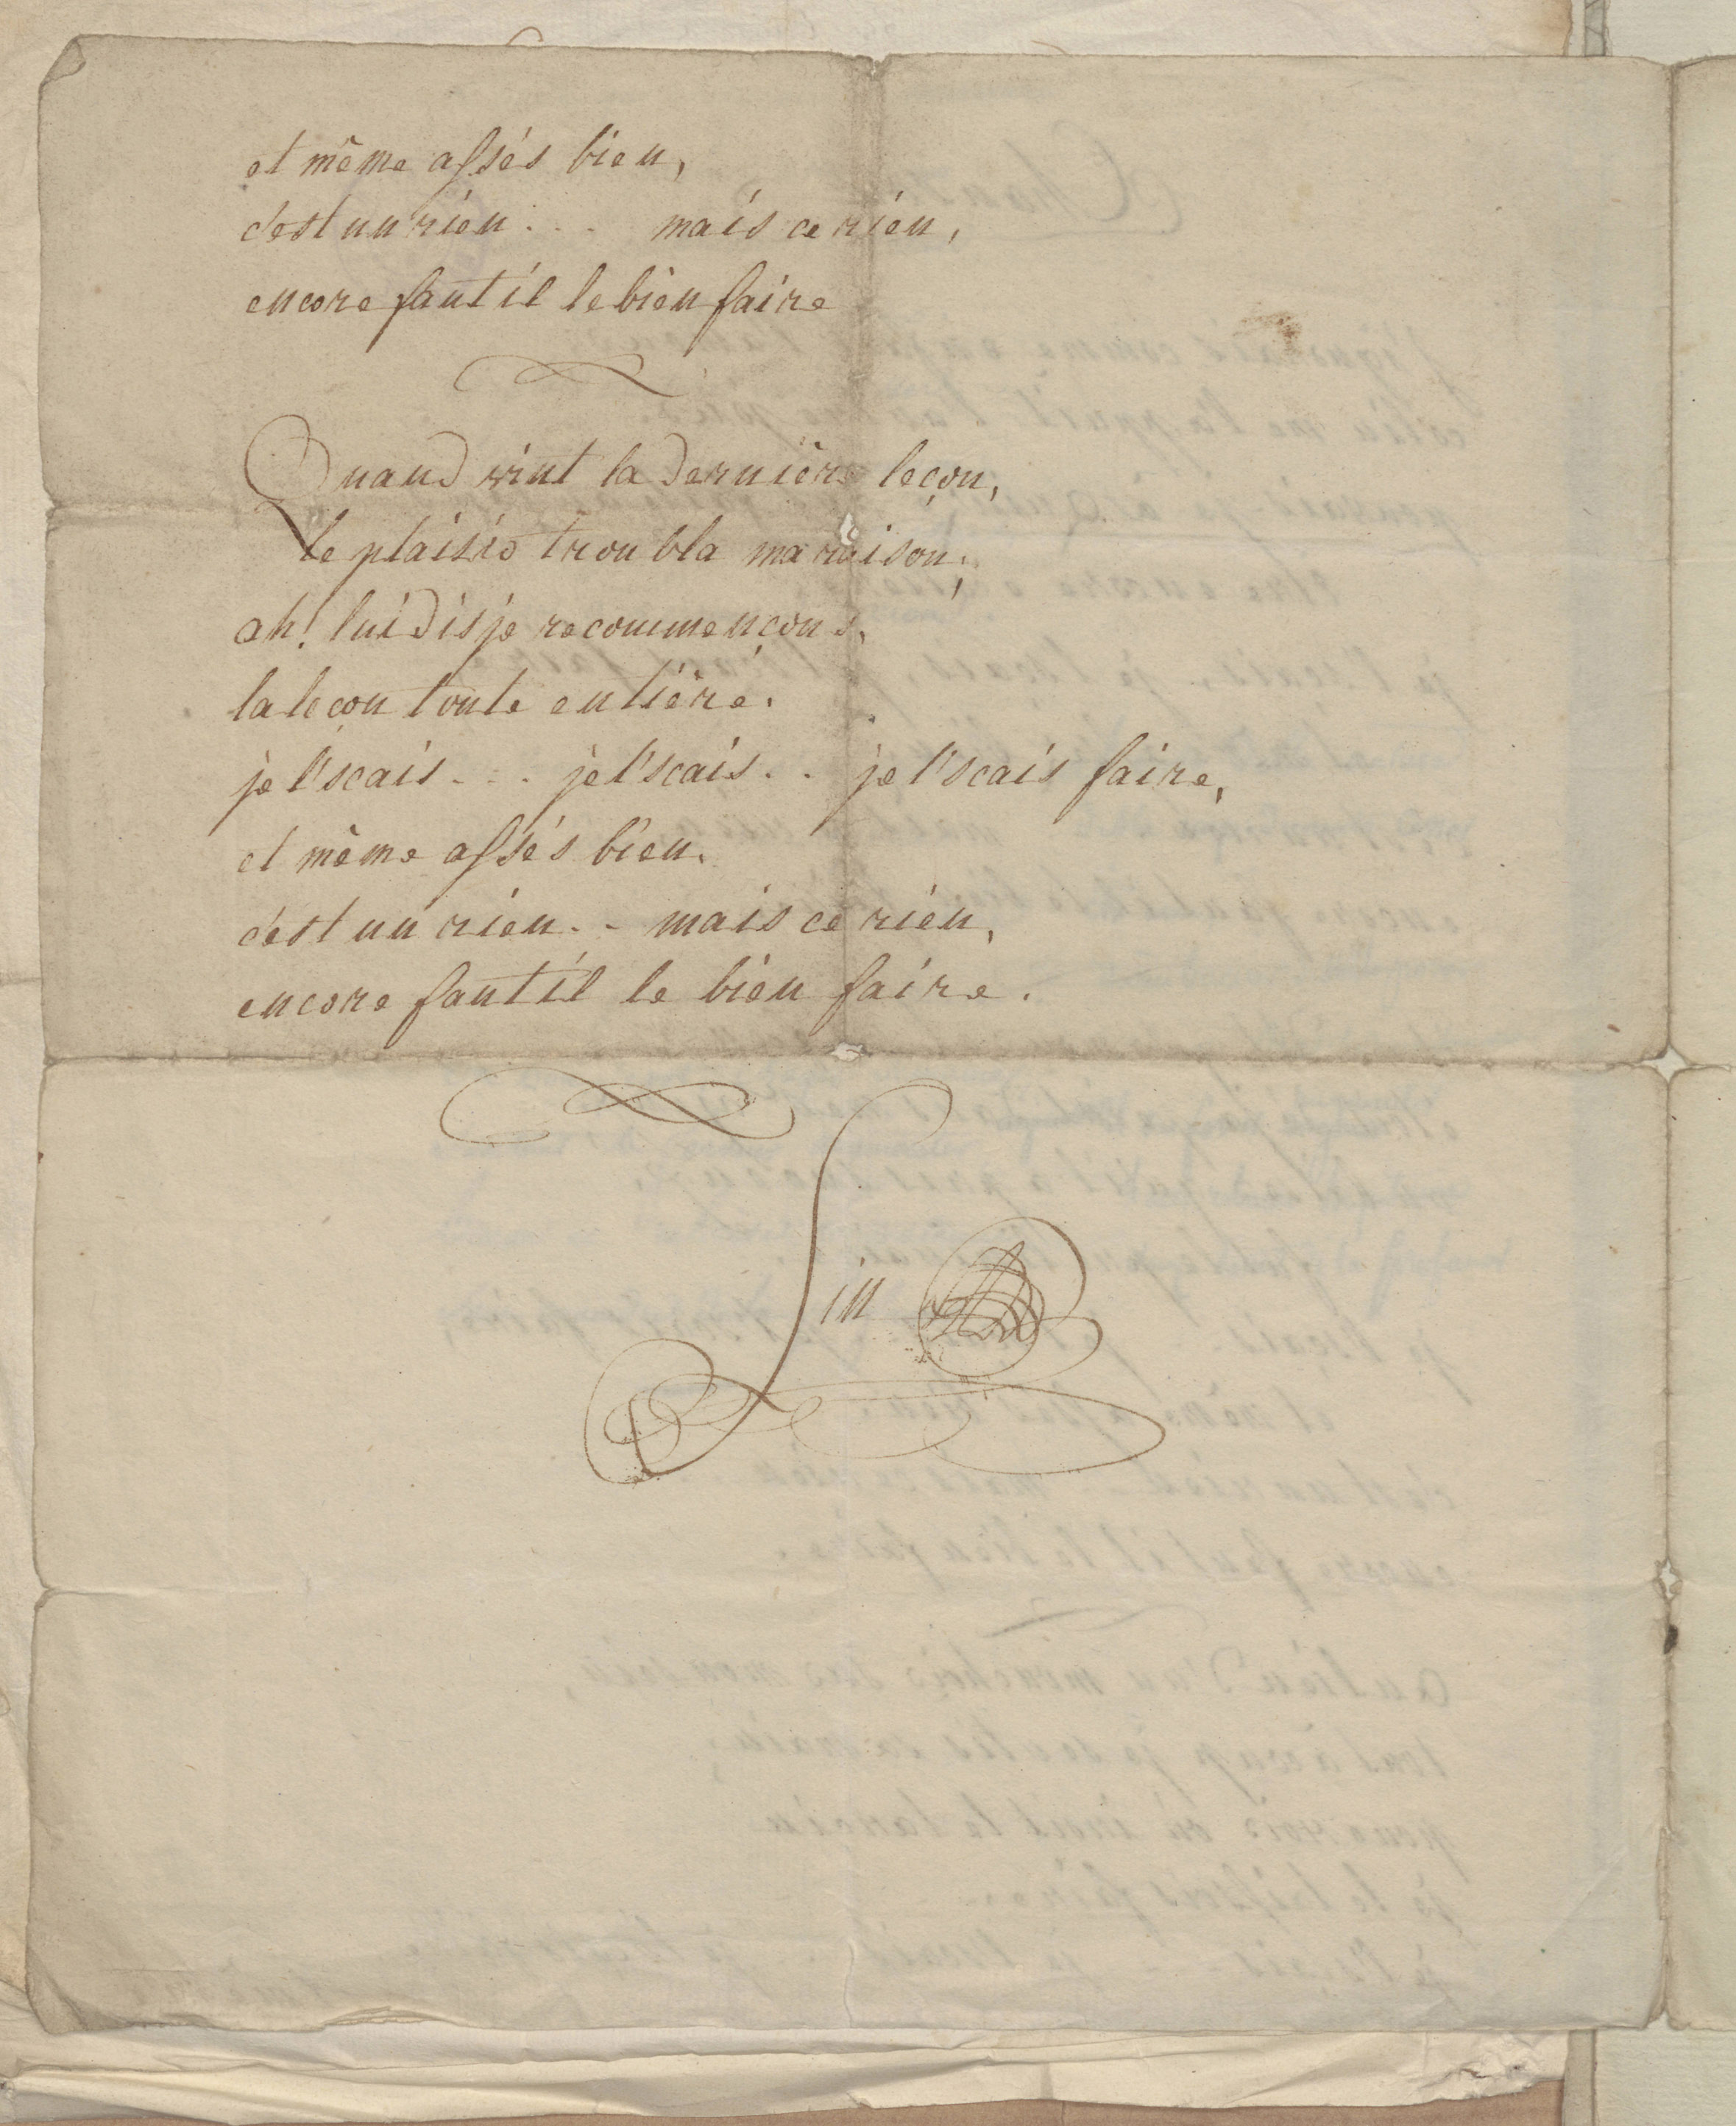 et même assés bien,
c'est un rien . . . mais ce rien,
encore faut il le bien faire
Quand vint la dernière leçon,
le plaisir troubla ma raison;
ah! lui dis je recommençons,
la leçon toute entière.
je l'scais . . . je l'scais . . je l'scais faire,
et même assés bien.
c'est un rien . . mais ce rien,
encore faut il le bien faire.
Fin